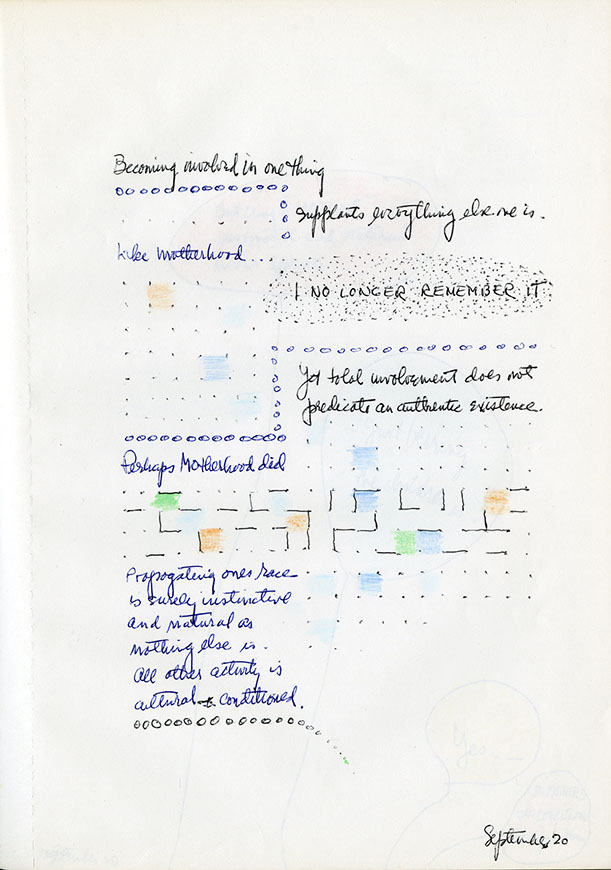 Becoming involved in one thing
supplants everything else one is.
Like Motherhood....
I NO LONGER REMEMBER IT
Yet total involvement does not
predicate an authentic existence.
Perhaps Motherhood did
Propogating ones race
is surely instinctive
and natural as
nothing else is.
All other activity is
cultural conditioned.
Yes
September 20